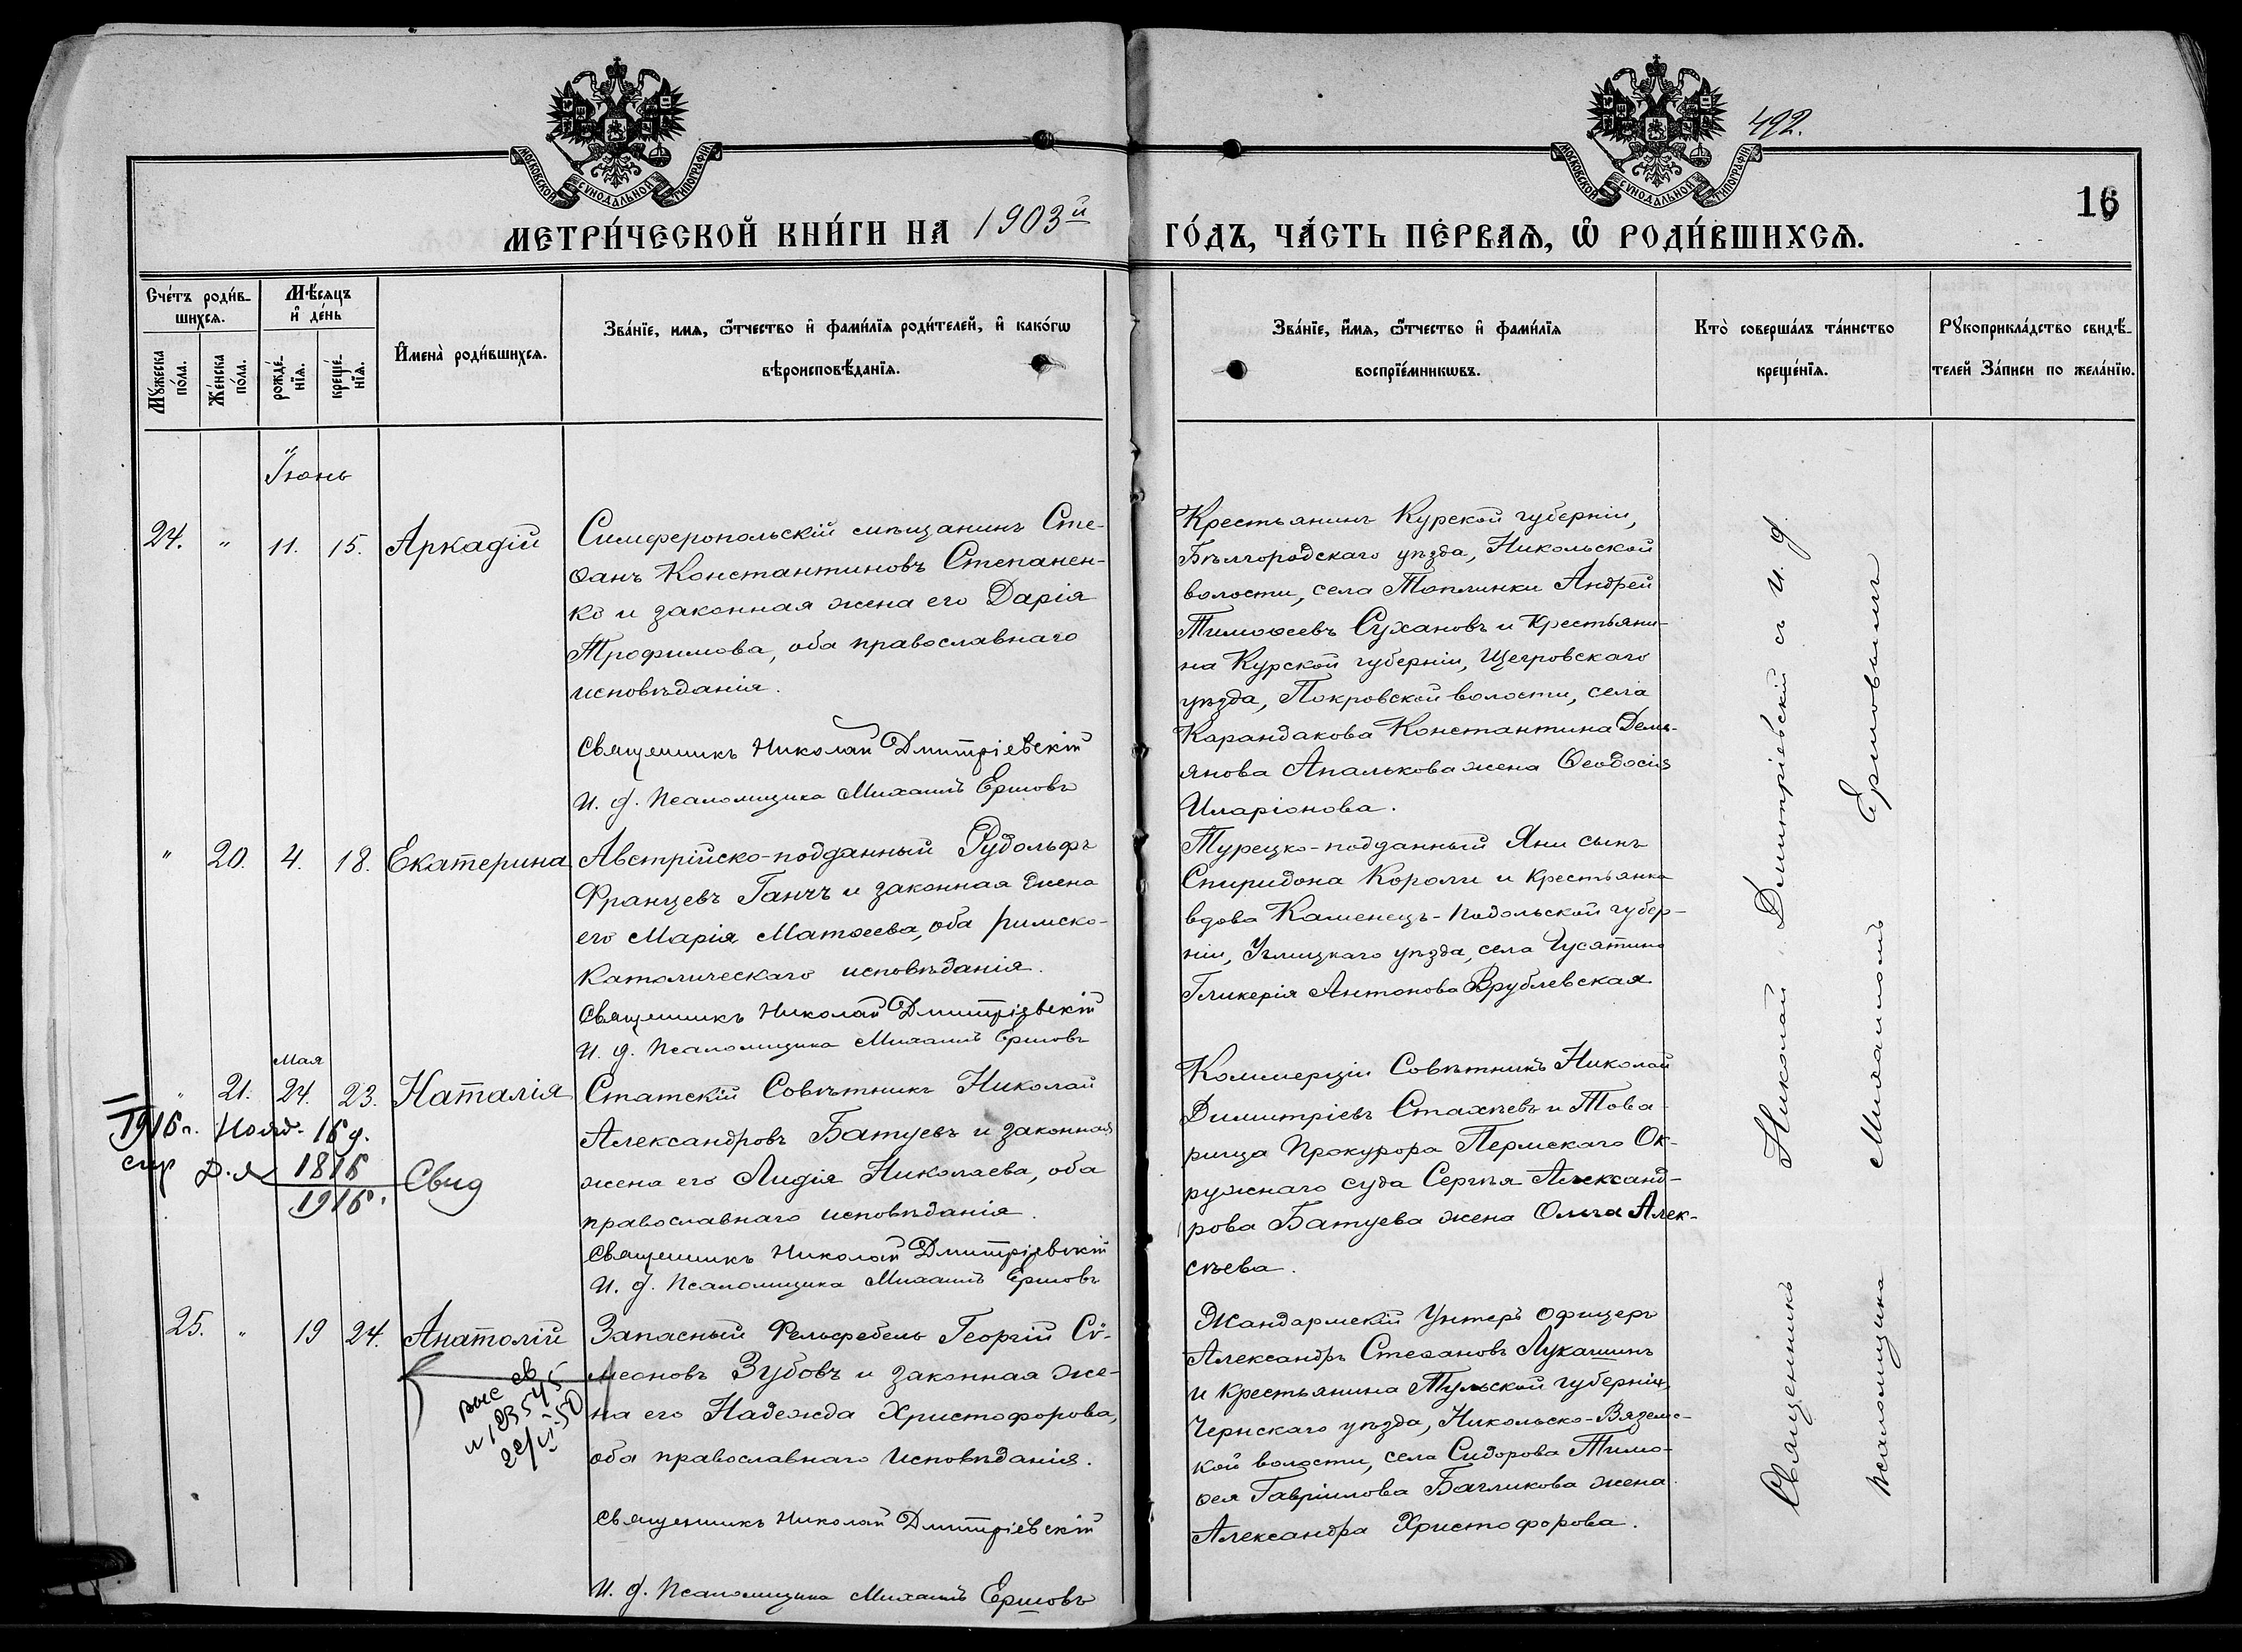 МОСКОВСКОЙ СѴНОДАЛЬНОЙ ТИПОГРАФІИ
МОСКОВСКОЙ СѴНОДАЛЬНОЙ ТИПОГРАФІИ
492.
16
МЕТРИ́ЧЕСКОЙ КНИ́ГИ НА 1903й ГО́ДЪ, ЧА́СТЬ ПЕ́РВАѦ, Ѡ҆ РОДИ́ВШИХСѦ.
Сче́тъ роди́в-
шихсѧ.
Мѣ́сѧцъ
и҆ де́нь
Мꙋ́жеска
по́ла.
Же́нска
по́ла.
рожде́-
нїѧ.
креще́-
нїѧ.
И҆мена̀ роди́вшихсѧ.
Зва́нїе, и҆мѧ, ѻ҆́тчество и҆ фами́лїѧ роди́телей, и҆ како́гѡ
вѣроисповѣ́данїѧ.
Зва́нїе, и҆́мѧ, ѻ҆́тчество и҆ фами́лїѧ
воспрїе́мникѡвъ.
Кто̀ соверша́лъ та́инство
креще́нїѧ.
Рꙋкоприкла́дство свидѣ́-
телей За́писи по жела́нїю.
Іюнь
24. " 11. 15. Аркадій
Симферопольскій мѣщанинъ Сте-
фанъ Константиновъ Степанен-
ко и законная жена его Дарія
Трофимова, оба православнаго
исповѣданія.
Священникъ Николай Дмитріевскій
И. д. Псаломщика Михаилъ Ершовъ
Крестьянинъ Курской губерніи,
Бѣлгородскаго уѣзда, Никольской
волости, села Топлинки Андрей
Тимоѳеевъ Сухановъ и крестьяни-
на Курской губерніи, Щегровскаго
уѣзда, Покровской волости, села
Карандакова Константина Демь-
янова Апалькова жена Ѳеодосія
Иларіонова.
" 20. 4. 18. Екатерина
Австрійско-подданный Рудольфъ
Францевъ Ганчъ и законная жена
его Марія Матѳеева, оба римско-
католическаго исповѣданія.
Священникъ Николай Дмитріевскій
И. д. Псаломщика Михаилъ Ершовъ
Турецко-подданный Яни сынъ
Спиридона Короли и крестьянка
вдова Каменецъ-Подольской губер-
ніи, уѣзда, села Гусятина
Гликерія Антонова Врублевская
Мая
" 21. 24. 23. Наталія
Статскій Совѣтникъ Николай
Александровъ Батуевъ и законная
жена его Лидія Николаева, оба
православнаго исповѣданія.
Священникъ Николай Дмитріевскій
И. д. Псаломщика Михаилъ Ершовъ
1916г. Нояб. 16 д.
1816
1916. Свид
Коммерціи Совѣтникъ Николай
Димитріевъ Стахѣевъ и Това-
рища Прокурора Пермскаго Ок-
ружнаго суда Сергѣя Александ-
рова Батуева жена Ольга Алек-
сѣева.
25. " 19 24. Анатолій
Запасный Фельдфебель Георгій Сѵ-
меоновъ Зубовъ и законная же-
на его Надежда Христофорова,
оба православнаго исповѣданія.
Священникъ Николай Дмитріевскій
И. д. Псаломщика Михаилъ Ершовъ
Жандармскій Унтеръ Офицеръ
Александръ Стефановъ Лукашинъ
и крестьянина Тульской губерніи,
Чернскаго уѣзда, Никольско-Вяземс-
кой волости, села Сидорова Тимо-
ѳея Гавріилова Багликова жена
Александра Христофорова.
Священникъ Николай Дмитріевскій съ и. д.
псаломщика Михаиломъ Ершовымъ